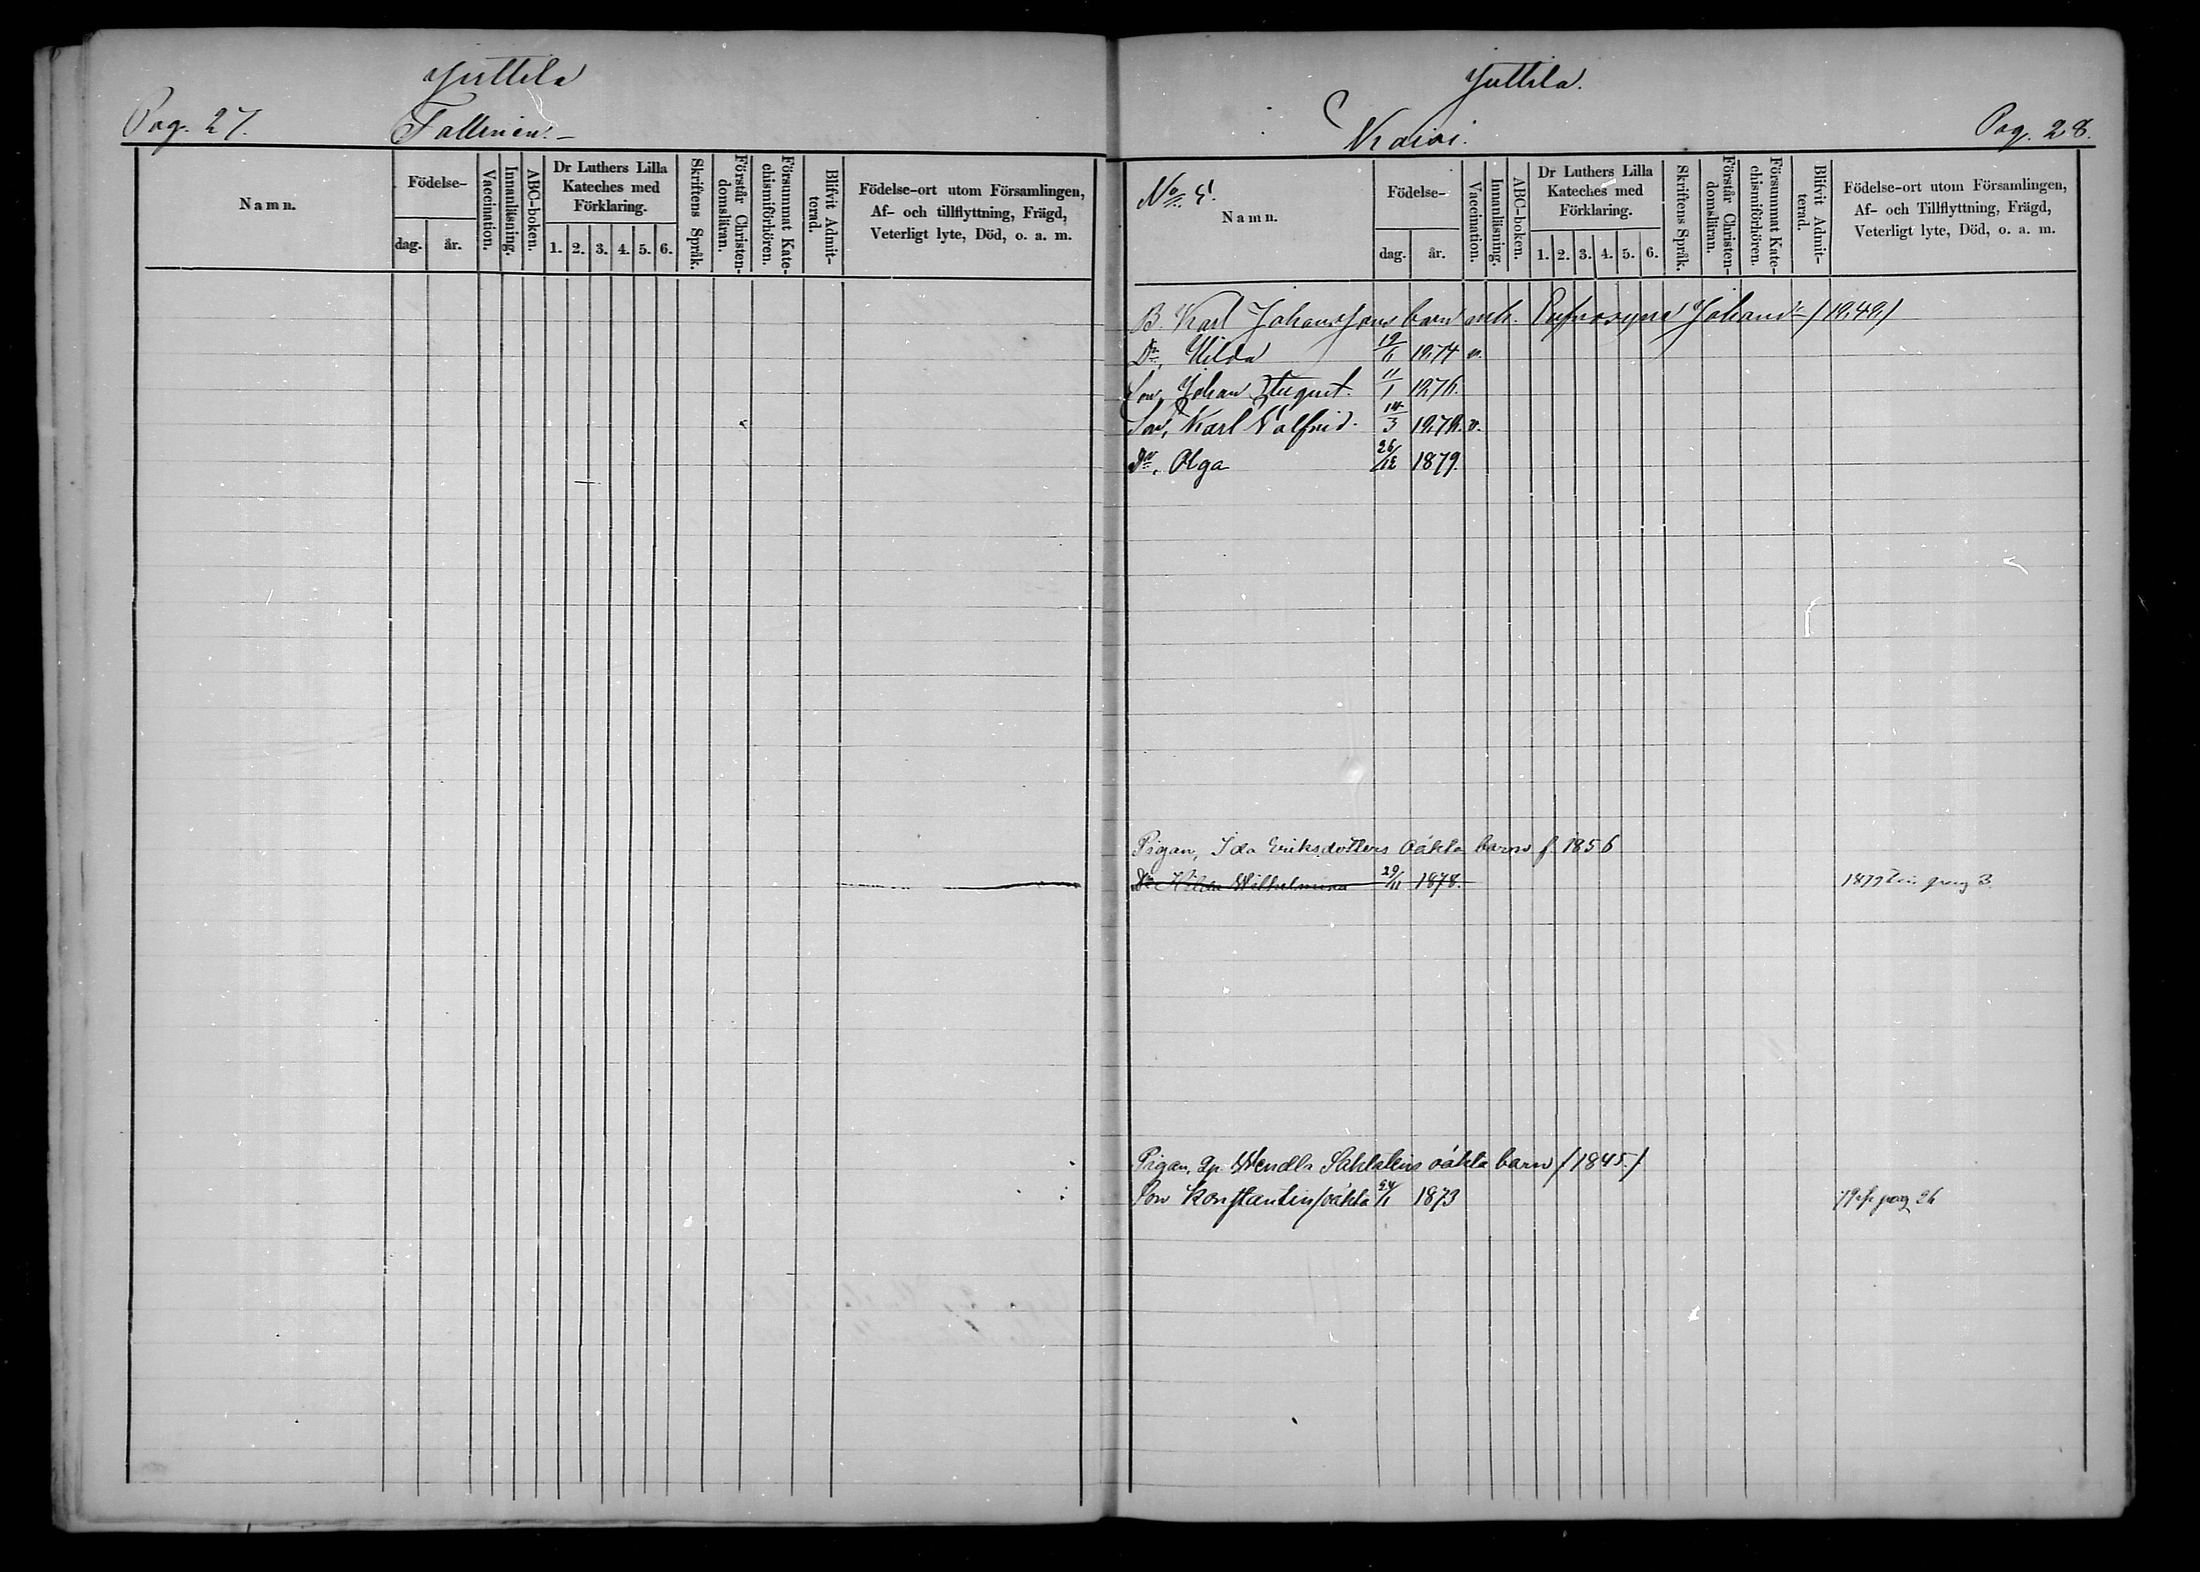 Juttila
Pag. 27.
Födelse-
Namn.
dag.
år.
Vaccination.
Innanläsning.
ABC-boken.
Dr Luthers Lilla
Kateches med
Förklaring.
1. 2. 3. 4. 5. 6.
Skriftens Språk.
Förstår Christen-
domsläran.
Försummat Kate-
chismiförhören.
Blifvit Admit-
terad.
Födelse-ort utom Församlingen,
Af- och tillflyttning, Frägd,
Veterligt lyte, Död, o. a. m.
Juttila.
Pag. 28.
Namn.
Födelse-
dag.
år.
Vaccination.
Innanläsning.
ABC-boken.
Dr Luthers Lilla
Kateches med
Förklaring.
1. 2. 3. 4. 5. 6.
Skriftens Språk.
Förstår Christen-
domsläran.
Försummat Kate-
chismiförhören.
Blifvit Admit-
terad.
Födelse-ort utom Församlingen,
Af- och Tillflyttning, Frägd,
Veterligt lyte, Död, o. a. m.
B. Karl Johanssons barn Eufrosyna Johansd:r
Dr, Hilda 1874 v.
Son, Johan August. 11/1 1876.
Son, Karl Valfrid. 14/3 1878. v.
Dr, Olga 26/12 1879.
Pigan, Ida Eriksdotters oäkta barn f 1856
Dr Hilda Wilhelmina 29/11 1878. 1879 pag 3.
Pigan, Wendla oäkta barn /1845./
Son Konstantin /oäkta 24/1 1873 pag 26